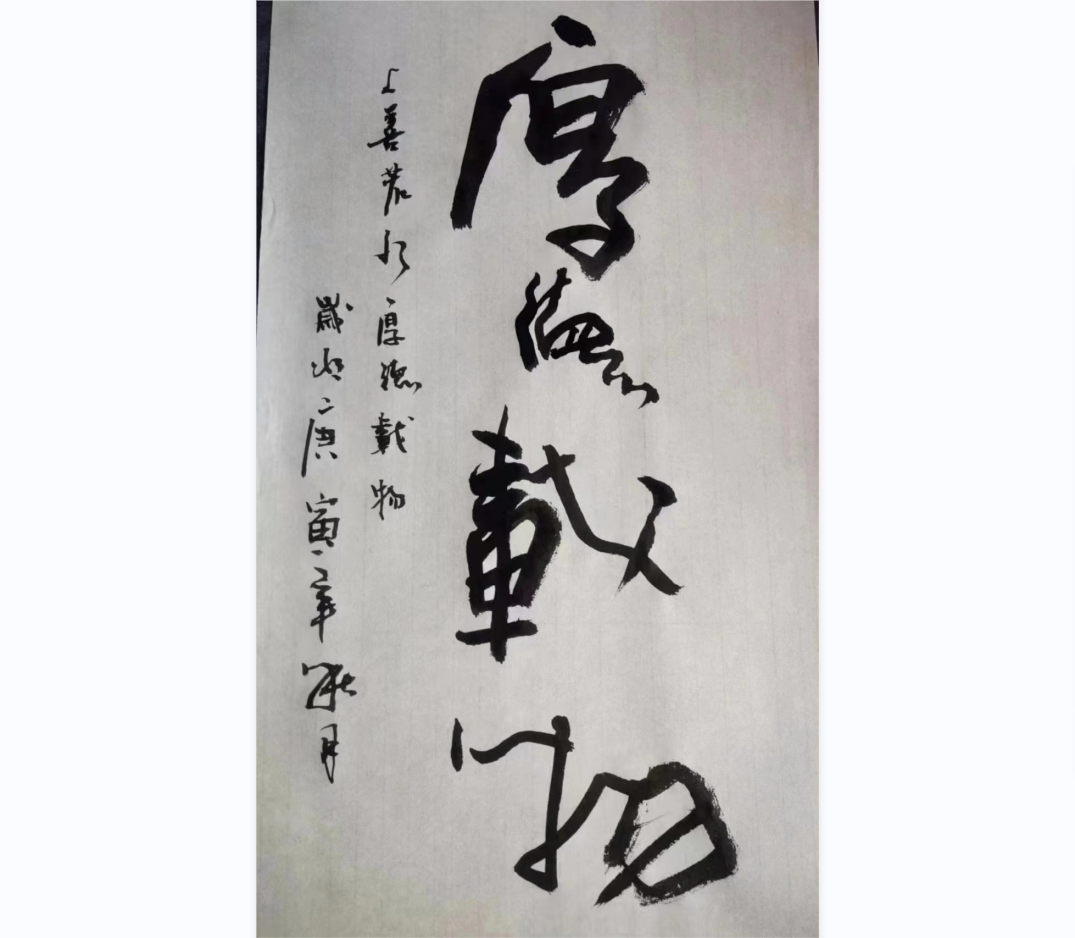 厚德載物
上善若水厚德載物
歲次庚寅年秋月